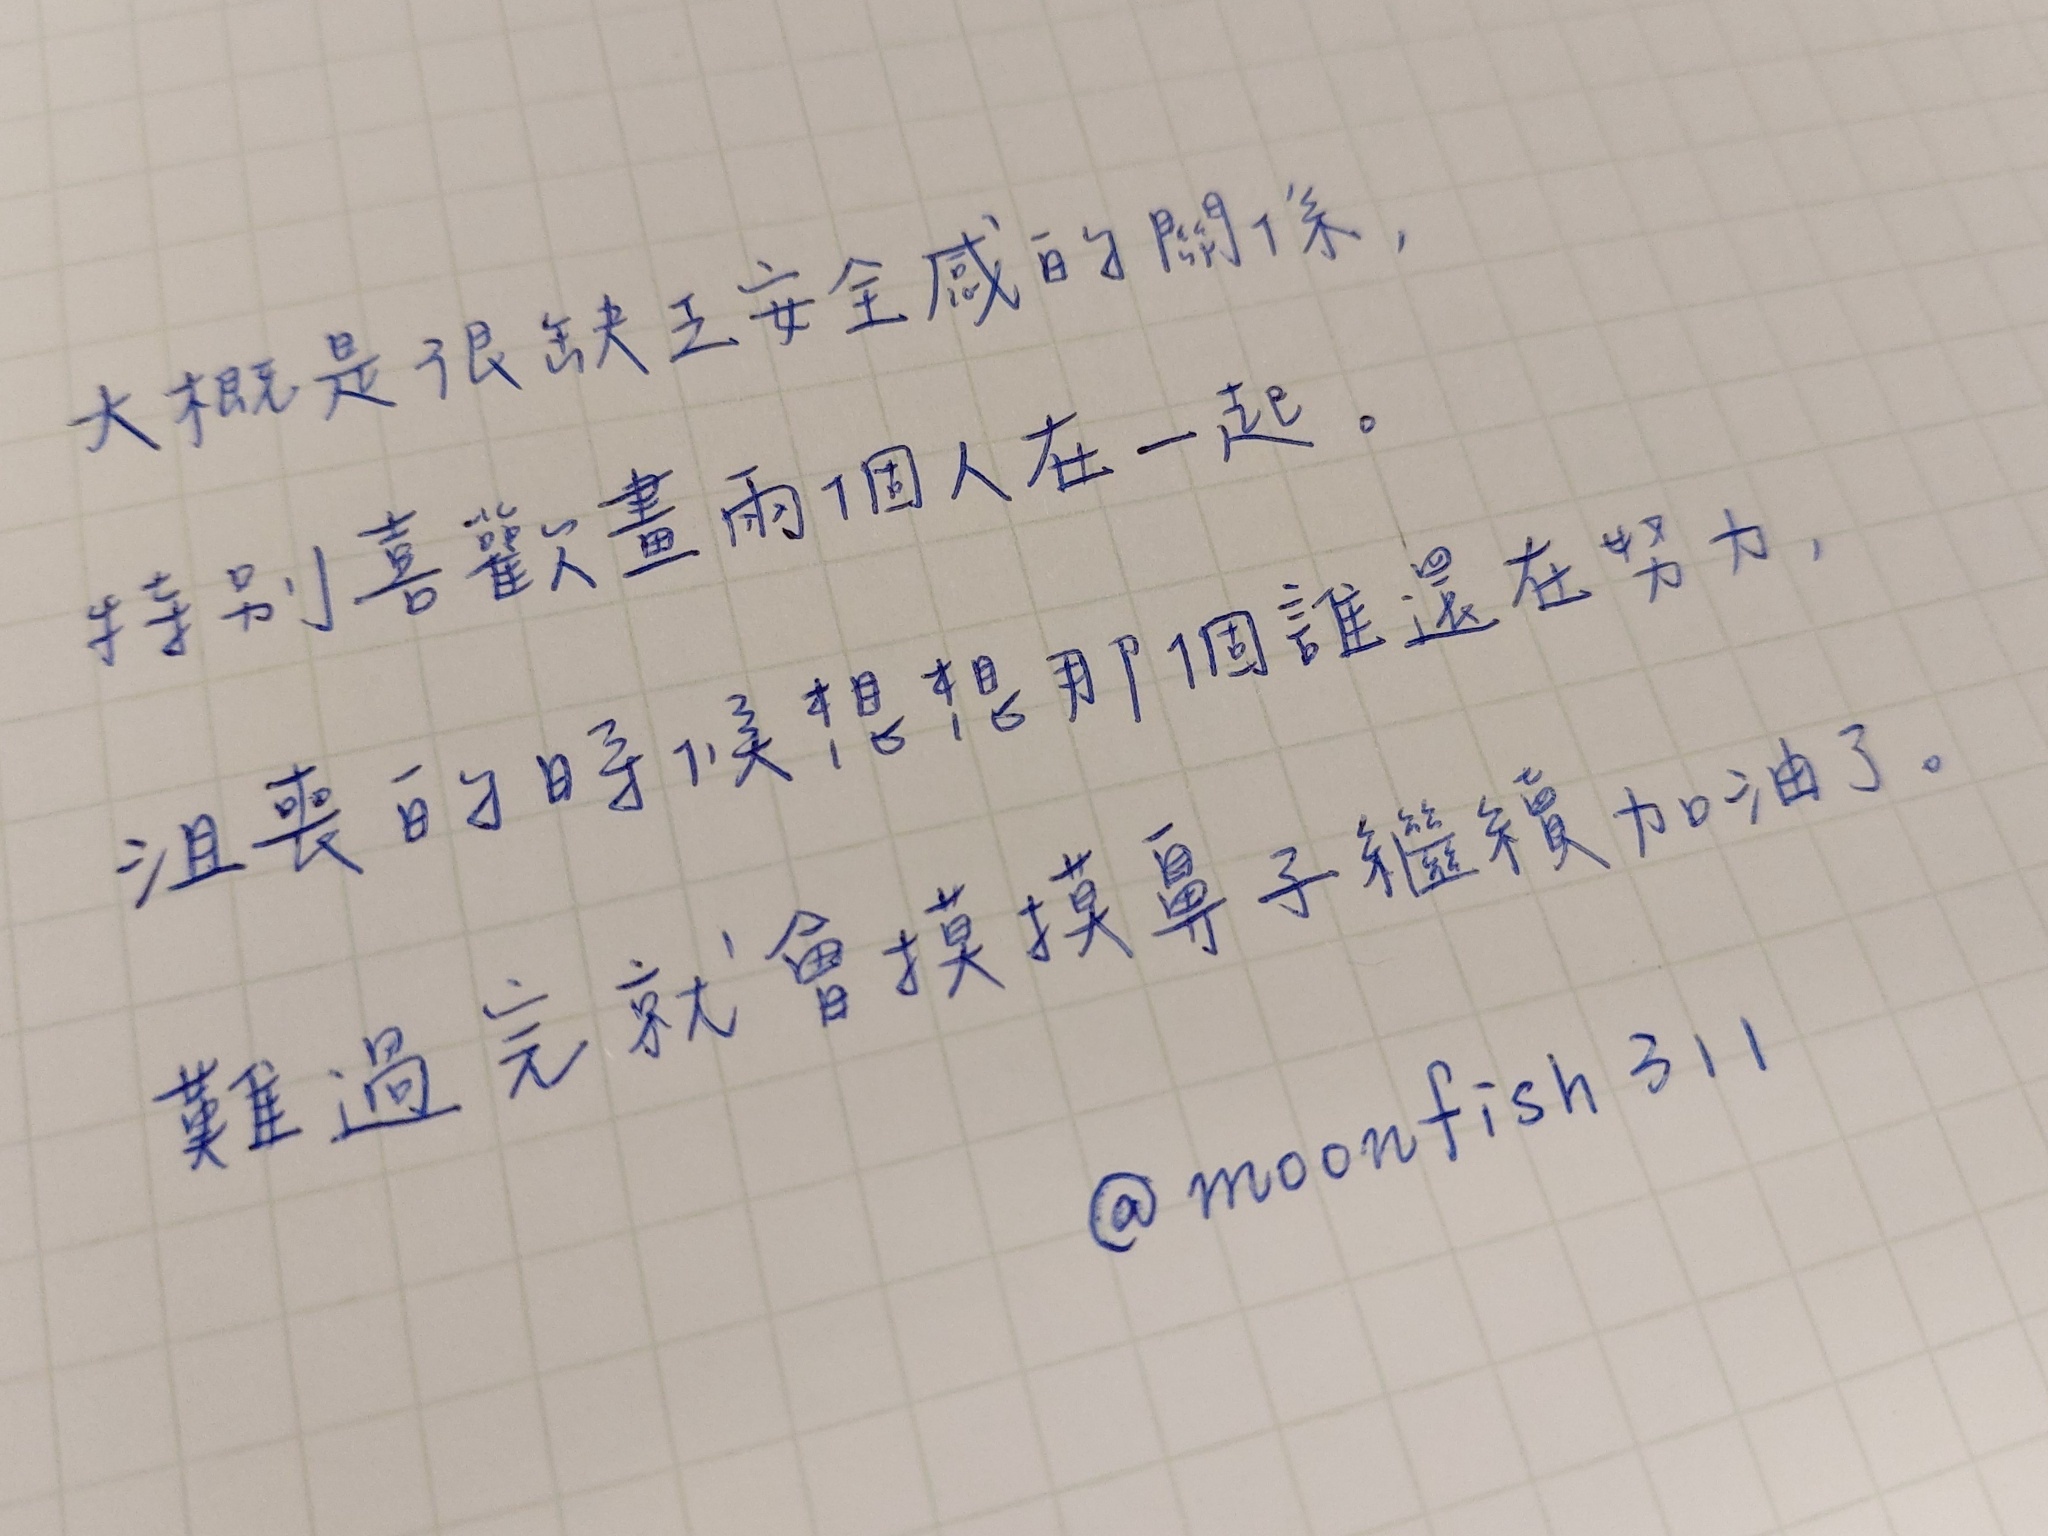 大概是很缺乏安全感的關係，
特別喜歡畫兩個人在一起。
沮喪的時候想想那個誰還在努力，
難過完就會摸摸鼻子繼續加油了。
@moonfish311